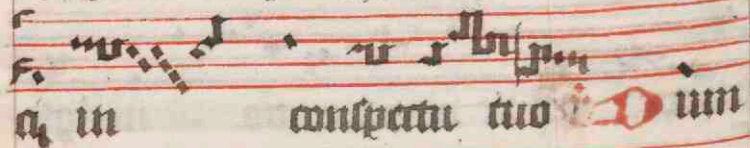 in conspectu tuo Dum